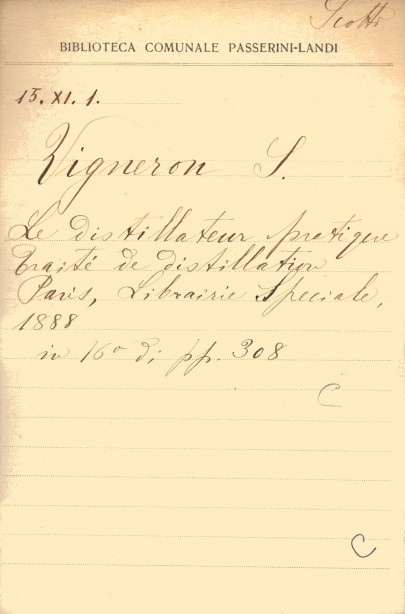 Scotti
BIBLIOTECA COMUNALE PASSERINI-LANDI
15. XI. 1.
Vigneron S.
Le distillateur pratique
traité de distillation
Paris, Librairie Speciale,
1888
in 16° di pp. 308
C
C